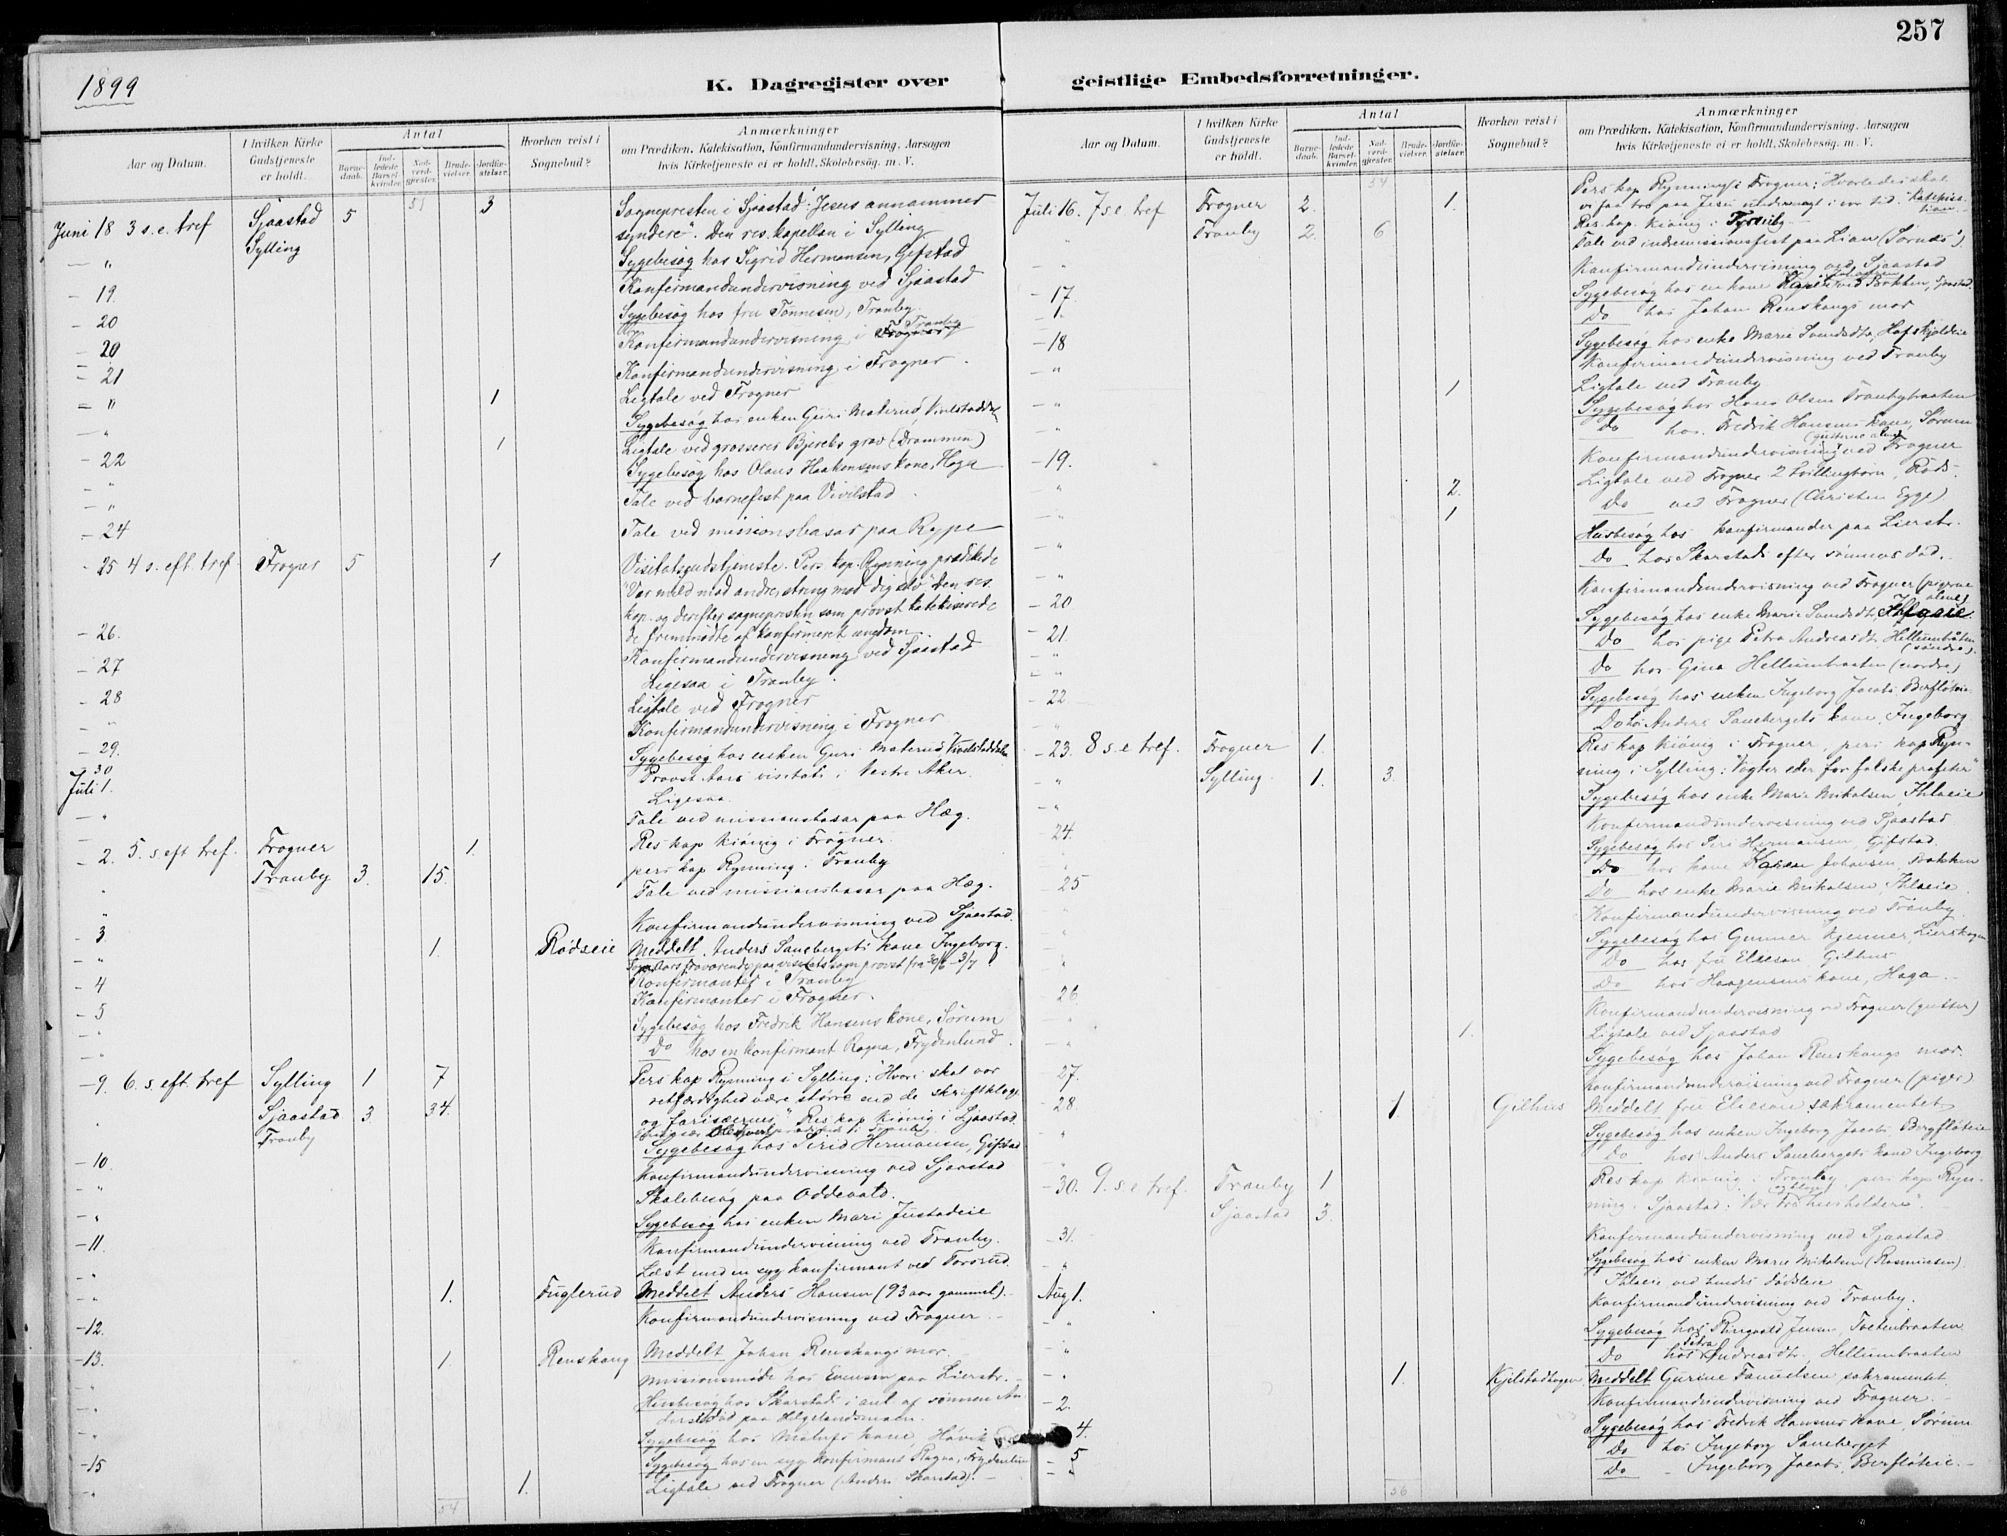 257
1899
K. Dagregister over geistlige Embedsforretninger.
Aar og Datum.
I hvilken Kirke Gudstjeneste er holdt.
Antal
Barnedaab.
Indledede Barselkvinder.
Nadverdgjester.
Brudevielser.
Jordfæstelser.
Hvorhen reist i Sognebud?
Anmærkninger
om Prædiken, Katekisation, Konfirmandundervisning, Aarsagen
hvis Kirketjeneste ei er holdt, Skolebesøg. m. V.
51
Juni 18 3 s. e. tref Sjaastad 5 3 Sognepresten i Sjaastad: "Jesus annammer
Sylling syndere". Den res. kapellan i Sylling
— " Sygebesøg hos Sigrid Hermansen, Gifstad
— 19. Konfirmandundervisning ved Sjaastad
— 20 Sygebesøg hos fru Tønnesen, Tranby
— 20 Konfirmandundervisning i Tranby
— 21 Konfirmandundervisning i Frogner.
— " 1 Ligtale ved Frogner
— " Sygebesøg hos enken Guri Materud
— 22 1 Ligtale ved grosserer grav (Drammen)
— " Sygebesøg hos Olaus Haakensens kone, Haga
— " Tale ved barnefest paa Vivilstad.
— 24 Tale ved missionsbasar paa Rype
— 25 4 s. eft. tref. Frogner 5 1 Visitatsgudstjeneste. Pers. kap. Rynning prædikede
"Vær mild mod andre, streng mod dig selv". Den res.
kap. og derefter sognepresten som provst katekiserede
de fremmødte af konfirmeret ungdom.
— 26. Konfirmandundervisning ved Sjaastad
— 27 Ligesaa i Tranby.
— 28 Ligtale ved Frogner
— " Konfirmandundervisning i Frogner
— 29. Sygebesøg hos enken Guri Materud
— 30 Provst Aars visitats i Vestre Aker
Juli 1. Ligesaa.
— " Tale ved missionsbasar paa Hæg.
— 2. 5. s eft tref. Frogner 1. Res kap Kiønig i Frogner.
Tranby 3. 15. pers kap Rynning i Tranby
" Tale ved missionsbasar paa Hæg.
— 3 Konfirmandundervisning ved Sjaastad.
— " 1. Rødseie Meddelt Anders Sanebergets kone Ingeborg.
fraværende paa visitats som provst fra 30/6 – 3/7
— 4 Konfirmanter i Tranby
— 5 Konfirmanter i Frogner.
— " Sygebesøg hos Fredrik Hansens kone, Sørum
— " Do hos en konfirmant Ragna, Frydenlund.
— 9. 6. s eft tref Sylling 1 7 Pers kap Rynning i Sylling: "Hvori skal vor
Sjaastad 3. 34. retfærdighed være større end de skriftkloge
Tranby og farisæernes". Res kap Kiønig i Sjaastad.
Sygebesøg hos Sirid Hermansen, Gifstad
— 10. Konfirmandundervisning ved Sjaastad
— " Skolebesøg paa Oddevald.
— " Sygebesøg hos enken Mari Justadeie
— 11. Konfirmandundervisning ved Tranby.
— " Læst med en syg konfirmant ved Torsrud.
— " 1. Fuglerud Meddelt Anders Hansen (93 aar gammel).
— 12. Konfirmandundervisning ved Frogner.
— 13. 1. Renskaug Meddelt Johan Renskaugs mor.
— " Missionsmøde hos Evensen paa Lierstr.
— " Husbesøg hos Skarstads i anl af sønnen
død paa Helgelandsmoen.
— " Sygebesøg hos kone, Høvik
— 15 Sygebesøg hos en syg konfirmant Ragna, Frydenlund
— " 1. Ligtale ved Frogner (Anders Skarstad).
54
Aar og Datum.
I hvilken Kirke Gudstjeneste er holdt.
Antal
Barnedaab.
Indledede Barselkvinder.
Nadverdgjester.
Brudevielser.
Jordfæstelser.
Hvorhen reist i Sognebud?
Anmærkninger
om Prædiken, Katekisation, Konfirmandundervisning, Aarsagen
hvis Kirketjeneste ei er holdt, Skolebesøg. m. V.
54
Juli 16. 7 s. e. tref Frogner 2. 1. Pers kap Rynning i Frogner: "Hvorledes skal
Tranby 2. 6 vi faa tro paa Jesu i vor tid."
Res. kap. Kiønig i
" Tale ved indremissionsfest paa Lian (Sørnes).
Konfirmandundervisning ved Sjaastad
— 17. Sygebesøg hos en kone Bakken, Sjaastad.
Do hos Johan Renskaugs mor
— 18 Sygebesøg hos enke Marie
— " Konfirmandundervisning ved Tranby
— " 1 Ligtale ved Tranby
— " Sygebesøg hos Hans Olsen Tranbybraaten
Do hos Fredrik Hansens kone, Sørum
— 19. Konfirmandundervisning ved Frogner (gutterne alene)
" 2. Ligtale ved Frogner 2 tvillingbørn, Røds
" 1 Do ved Frogner (Christen Egge)
" Husbesøg hos konfirmander paa Lierstr.
" Do hos Skarstads efter sønnens død.
— 20 Konfirmandundervisning ved Frogner (pigerne alene)
— 21. Sygebesøg hos enke Marie
" Do hos pige Petra Andreasdt. Hellumbraaten (søndre)
" Do hos Gina Hellumbraaten (nordre)
— 22 Sygebesøg hos enken Ingeborg Jacobs. Bergfløteie
" Do hos Anders Sanebergets kone, Ingeborg
— 23. 8 s. e tref. Frogner 1. Res kap Kiønig i Frogner, pers kap Rynning
" Sylling 1. 3. i Sylling: "Vogter eder for falske profeter"
" Sygebesøg hos enke Marie Mikalsen,
— 24. Konfirmandundervisning ved Sjaastad
Sygebesøg hos Siri Hermansen, Gifstad.
" Do hos kone Karen Johansen, Bakken
— 25 Do hos enke Marie Mikalsen,
" Konfirmandundervisning ved Tranby.
" Sygebesøg hos Gunner Kjenner, Lierskogen
" Do hos fru Eliesen Gilhus
" Do hos Haagensens kone, Haga
— 26. Konfirmandundervisning ved Frogner (gutter)
" 1. Ligtale ved Sjaastad
" Sygebesøg hos Johan Renskaugs mor.
— 27. Konfirmandundervisning ved Frogner (piger)
— 28. 1 Gilhus Meddelt fru Eliesen sakramentet
" Sygebesøg hos enken Ingeborg Jacobs. Bergfløteie
" Do hos Anders Sanebergets kone Ingeborg
— 30. 9. s. e tref. Tranby 1 Res kap Kiønig i Tranby, pers kap Rynning
Sjaastad 3. i Sjaastad: "Vær tro og kloge husholdere".
— 31. Konfirmandundervisning ved Sjaastad
" Sygebesøg hos enken Marie Mikalsen (Rasmussen)
Aug 1. Konfirmandundervisning ved Tranby.
— " Sygebesøg hos Ringvald Jensen Toetenbraaten
" Do hos Petra Andreasdt. Hellumbraaten
— " 1. Meddelt Gurine sakramentet
— 2. Konfirmandundervisning ved Frogner.
4. Sygebesøg hos Fredrik Hansens kone, Sørum
— 5 Do hos Ingeborg Saneberget
— " Do — Ingeborg Jacobs. Bergfløteie.
36